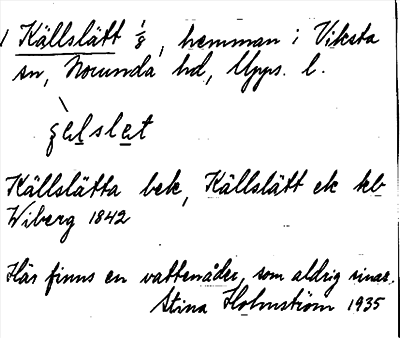 1 Källslätt 1/8, hemman i Viksta
sn, Norunda hd, Upps. l.
Källslätta bek, Källslätt ek kb
Wiberg 1842
Här finns en vattenåder, som aldrig sinar.
Stina Holmström 1935